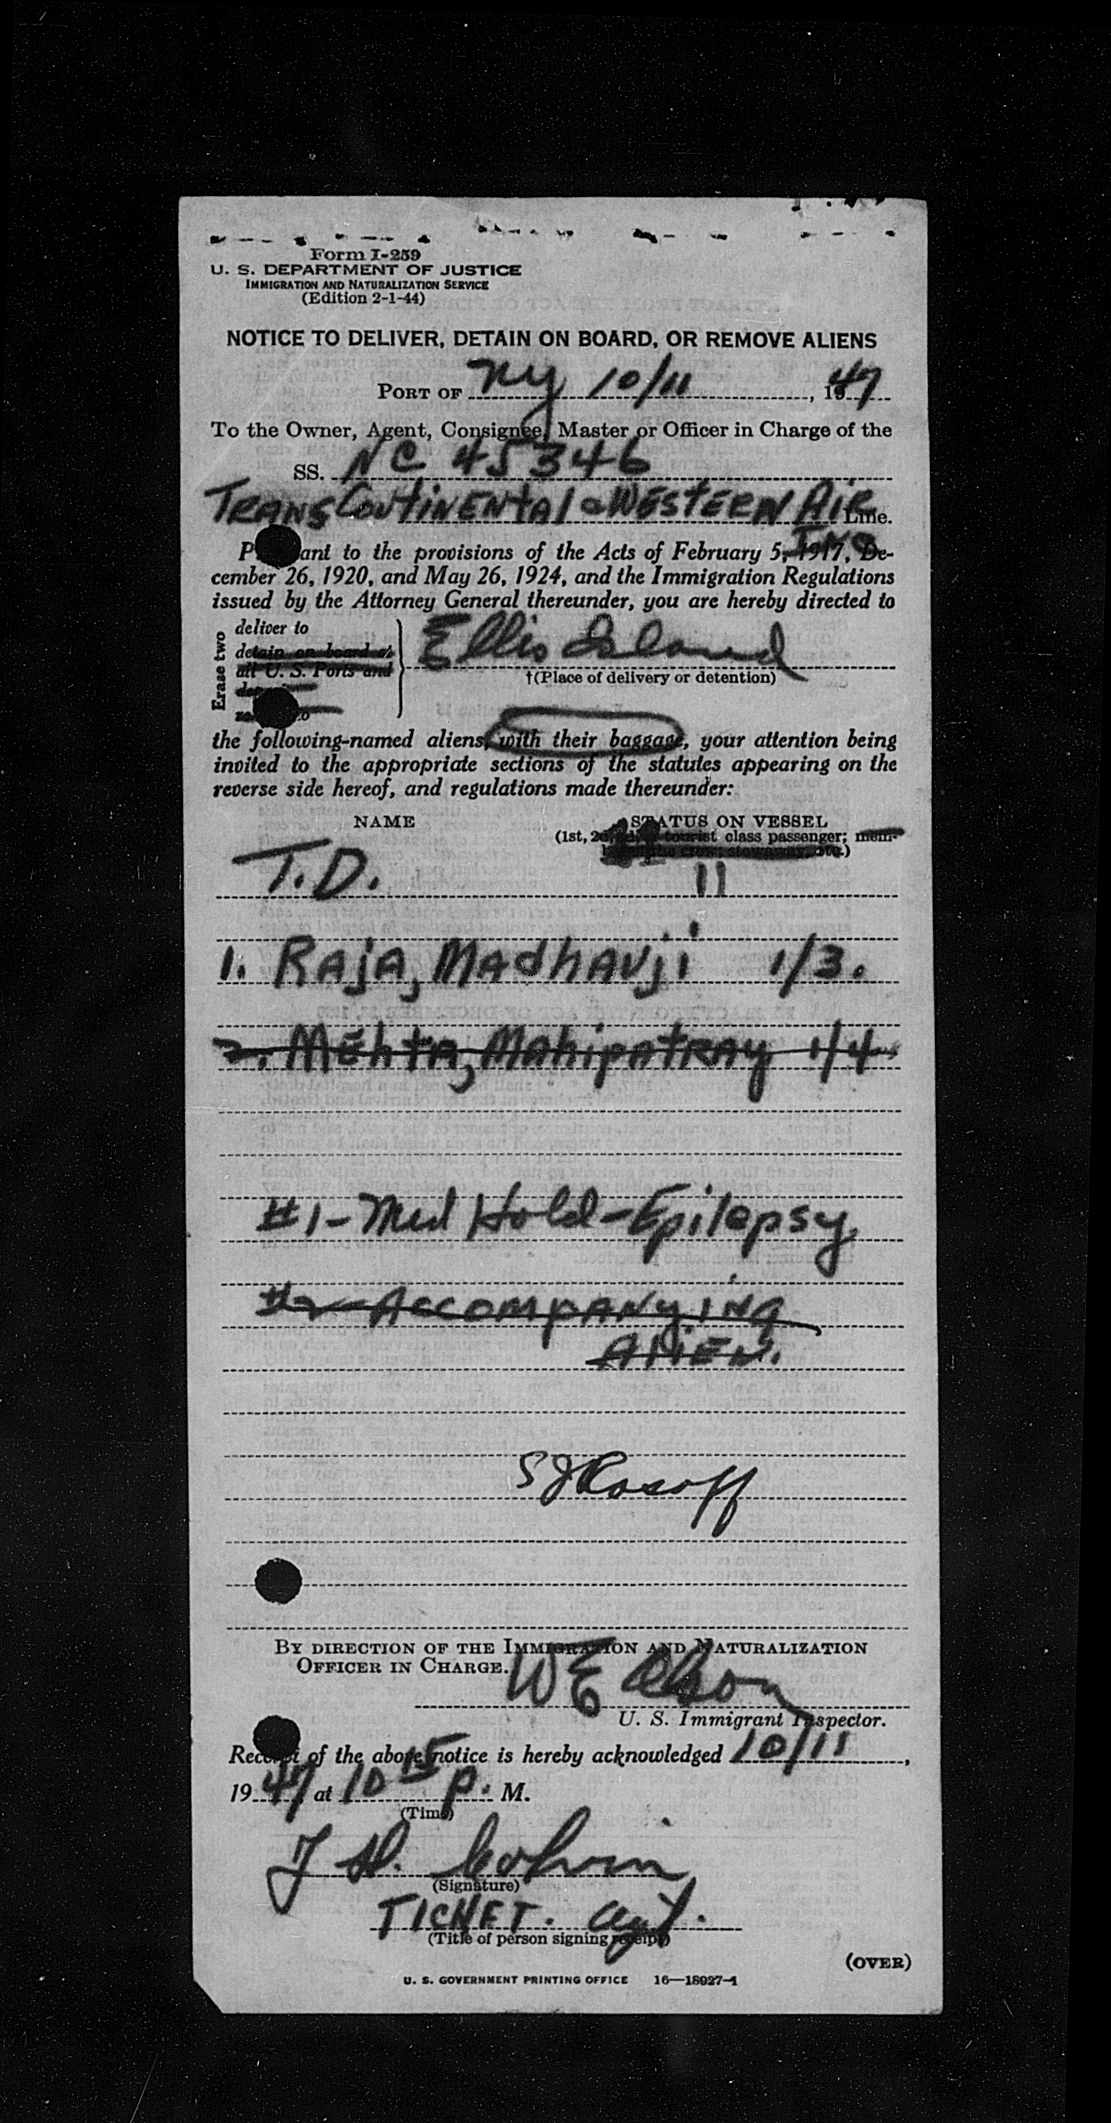 Form I-259
U. S. DEPARTMENT OF JUSTICE
IMMIGRATION AND NATURALIZATION SERVICE
(Edition 2-1-44)
NOTICE TO DELIVER, DETAIN ON BOARD, OR REMOVE ALIENS
PORT OF NY 10/11, 1947
To the Owner, Agent, Consignee, Master or Officer in Charge of the
SS. NC 45346
TRANSCONTINENTAL & WESTERN AIR Line.
INC
ant to the provisions of the Acts of February 5, 1917, De-
cember 26, 1920, and May 26, 1924, and the Immigration Regulations
issued by the Attorney General thereunder, you are hereby directed to
Erase two
deliver to
detain on board at
all U. S. Ports and
Ellis Island
†(Place of delivery or detention)
the following-named aliens, with their baggage, your attention being
invited to the appropriate sections of the statutes appearing on the
reverse side hereof, and regulations made thereunder:
NAME STATUS ON VESSEL
(1st, 2d, tourist class passenger; mem-
crew; stowaway, etc.)
T.D. 11
1. RAjA, MAdhAvji 1/3.
2. MEhtA, MAhipAtRAy 1/4
#1 - Med Hold - Epilepsy.
#2 - ACCOMPANYING
ALIEN.
S J Rosoff
BY DIRECTION OF THE IMMIGRATION AND NATURALIZATION
OFFICER IN CHARGE.
W E Olson
U. S. Immigrant Inspector.
Receipt of the above notice is hereby acknowledged 10/11,
1947 at 10 15 P. M.
(Time)
J H. Colvin
(Signature)
TICKET. Agt.
(Title of person signing receipt)
(OVER)
U. S. GOVERNMENT PRINTING OFFICE 16—18927-1